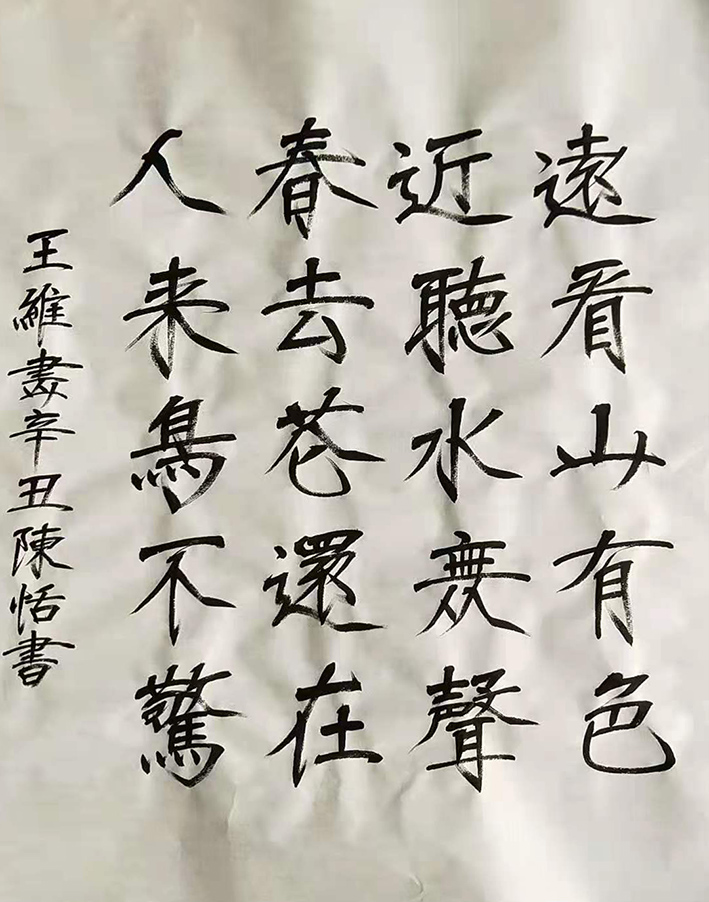 遠看山有色
近聽水無聲
春去花還在
人来鳥不驚
王維畫辛丑陳恬書